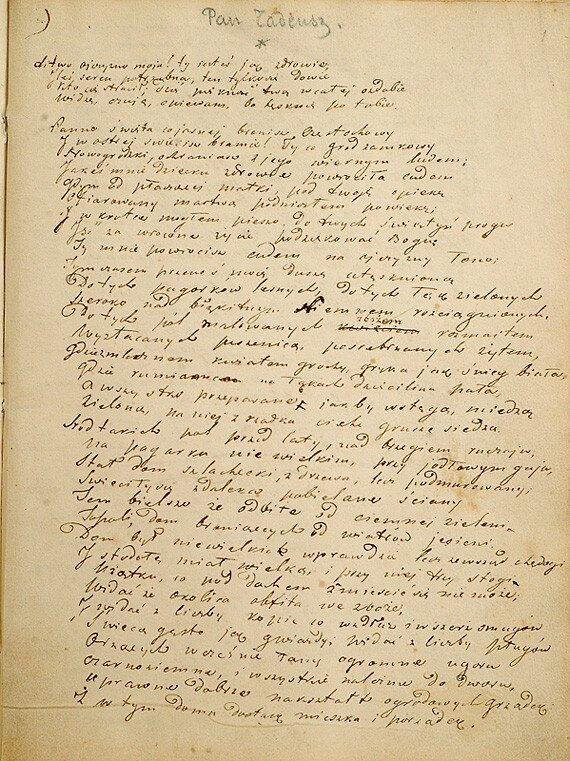 Pan Tadeusz.
Litwo ojczyzno moja! ty jesteś jak zdrowie,
ten tylko się dowie
Kto cię stracił. Dziś piękność twą w całej ozdobie
Widzę, czuję, opiewam, bo tęsknię po tobie.
Panno święta co jasnej bronisz Częstochowy
I w ostrej świecisz bramie! Ty co gród zamkowy
Nowogródzki, ochraniasz z jego wiernym ludem;
Jakeś mnie dziecko zdrowie powróciła cudem
Gdym od płaczącej matki, pod twoję opiekę
Ofiarowany martwą podniosłem powiekę;
I w krótce mogłem pieszo do twych świątyń progu
Iść za wrócone życie podziękować Bogu
Ty mnie powrócisz cudem na ojczyzny łono;
Tymczasem przenoś moją duszę utęsknioną
Do tych pagórków leśnych, do tych łąk zielonych
Szeroko nad błękitnym Niemnem rościągnionych,
Do tych pól malowanych zbożem rozmaitem
Wyzłacanych pszenicą, posrebrzanych żytem,
Gdzie bursztynowy kwiatem grochy, gryka jak śnieg biała,
Gdzie rumiancem na łąkach dzięcielina pała,
A wszystko przepasane jakby wstęgą, miedzą
Zieloną, na niej z rzadka ciche grusze siedzą.
Nad takich pól przed laty, nad brzegiem ruczaju,
Na pagórku nie wielkim, przy jodłowym gaju,
Stał dom szlachecki, z drzewa, lecz podmurowany;
Świeciły się z daleka pobielane ściany
Tem bielsze że odbite od ciemnej zieleni
Topoli, dom broniących od wiatrów jesieni.
Dom był niewielki wprawdzie lecz zewsząd chędogi
I stodołę miał wielką, i przy niej trzy stogi
Użątku, co pod dachem zmieścić się nie może,
Widać że okolica obfita we zboże,
I widać z liczby kopic co wzdłuż i wszerz smugów
Świecą gęsto jak gwiazdy, widać z liczby pługów
Orzących wcześnie łany ogromne ugoru
Czarnoziemne, i wszystkie należne do dworu,
Uprawne dobrze nakształt ogrodowych grządek:
Że w tym domu dostatek mieszka i porządek.